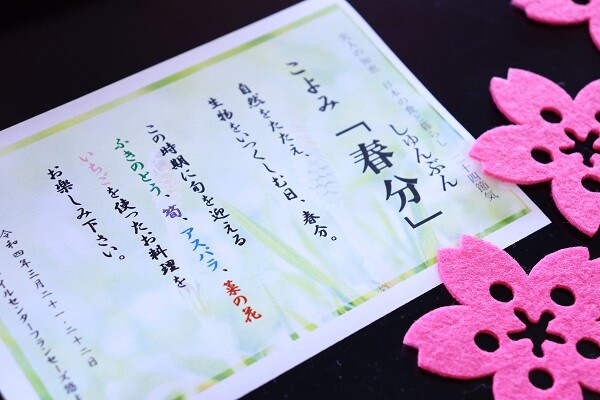 先人の知恵 日本の食と暮らし 二十四節気
しゅんぶん
こよみ「春分」
自然をたたえ、
生物をいつくしむ日、春分。
この時期に旬を迎える
ふきのとう、筍、アスパラ、菜の花
いちごを使ったお料理を
お楽しみ下さい。
令和四年三月二十一・二十二日
イルセンターフランセーズ